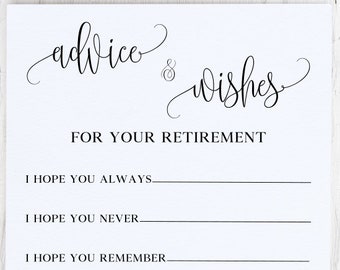 advice
& wishes
FOR YOUR RETIREMENT
I HOPE YOU ALWAYS
I HOPE YOU NEVER
I HOPE YOU REMEMBER